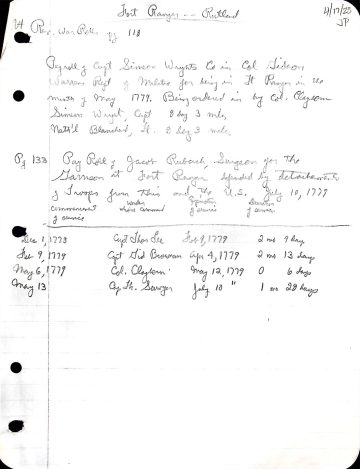 Fort Ranger -- Rutland
4/17/25
JP
Vt Rev. War Rolls pg 118
Payroll of Capt Simeon Wrights Co in Col Gideon
Warrens Regt of Militia for being in Ft Ranger in the
month of May 1779. Being ordered in by Col. Clayborn
Simeon Wright, Capt 8 day 3 miles
Nat'l Blanchard, Lt. 8 day 3 miles
Pg 133 Pay Roll of Jacob Ruback, Surgeon for the
Garrison at Fort Ranger by detachments
of Troops from this and the U.S. July 10, 1779
commencement of service
under whose command
of service
of service
Dec 1, 1778 Capt Thos Lee Feb 9, 1779 2 mo 9 day
Feb 9, 1779 Capt Gid Brownson Apr 4, 1779 2 mo 13 days
May 6, 1779 Col. Clayborn May 12, 1779 0 6 days
May 13 Cap Th. Sawyer July 10 " 1 mo 29 days